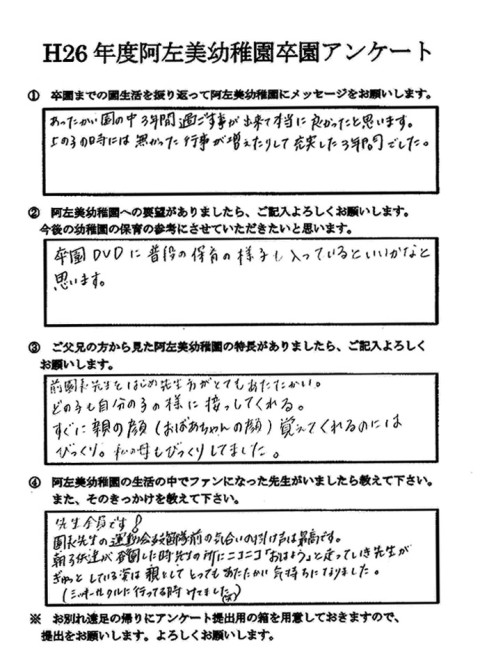 H26 年度阿左美幼稚園卒園アンケート
① 卒園までの園生活を振り返って阿左美幼稚園にメッセージをお願いします。
あったかい園の中3年間過ごす事が出来て本当に良かったと思います。
上の子の時には無かった行事が増えたりして充実した3年間でした。
② 阿左美幼稚園への要望がありましたら、ご記入よろしくお願いします。
今後の幼稚園の保育の参考にさせていただきたいと思います。
卒園DVDに普段の保育の様子も入っているといいかなと
思います。
③ ご父兄の方から見た阿左美幼稚園の特長がありましたら、ご記入よろしく
お願いします。
前園長先生をはじめ先生方がとてもあたたかい。
どの子も自分の子の様に接してくれる。
すぐに親の顔(おばあちゃんの顔)覚えてくれるのには
びっくり。私の母もびっくりしてました。
④ 阿左美幼稚園の生活の中でファンになった先生がいましたら教えて下さい。
また、そのきっかけを教えて下さい。
先生全員です!
園長先生の運動会 前の気合いの掛け声は最高です。
朝子供達が登園した時先生の所にニコニコ「おはよう」と走っていき先生が
ぎゅっとしている姿は親としてとってもあたたかい気持ちになりました。
行ってる時
※ お別れ遠足の帰りにアンケート提出用の箱を用意しておきますので、
提出をお願いします。よろしくお願いします。